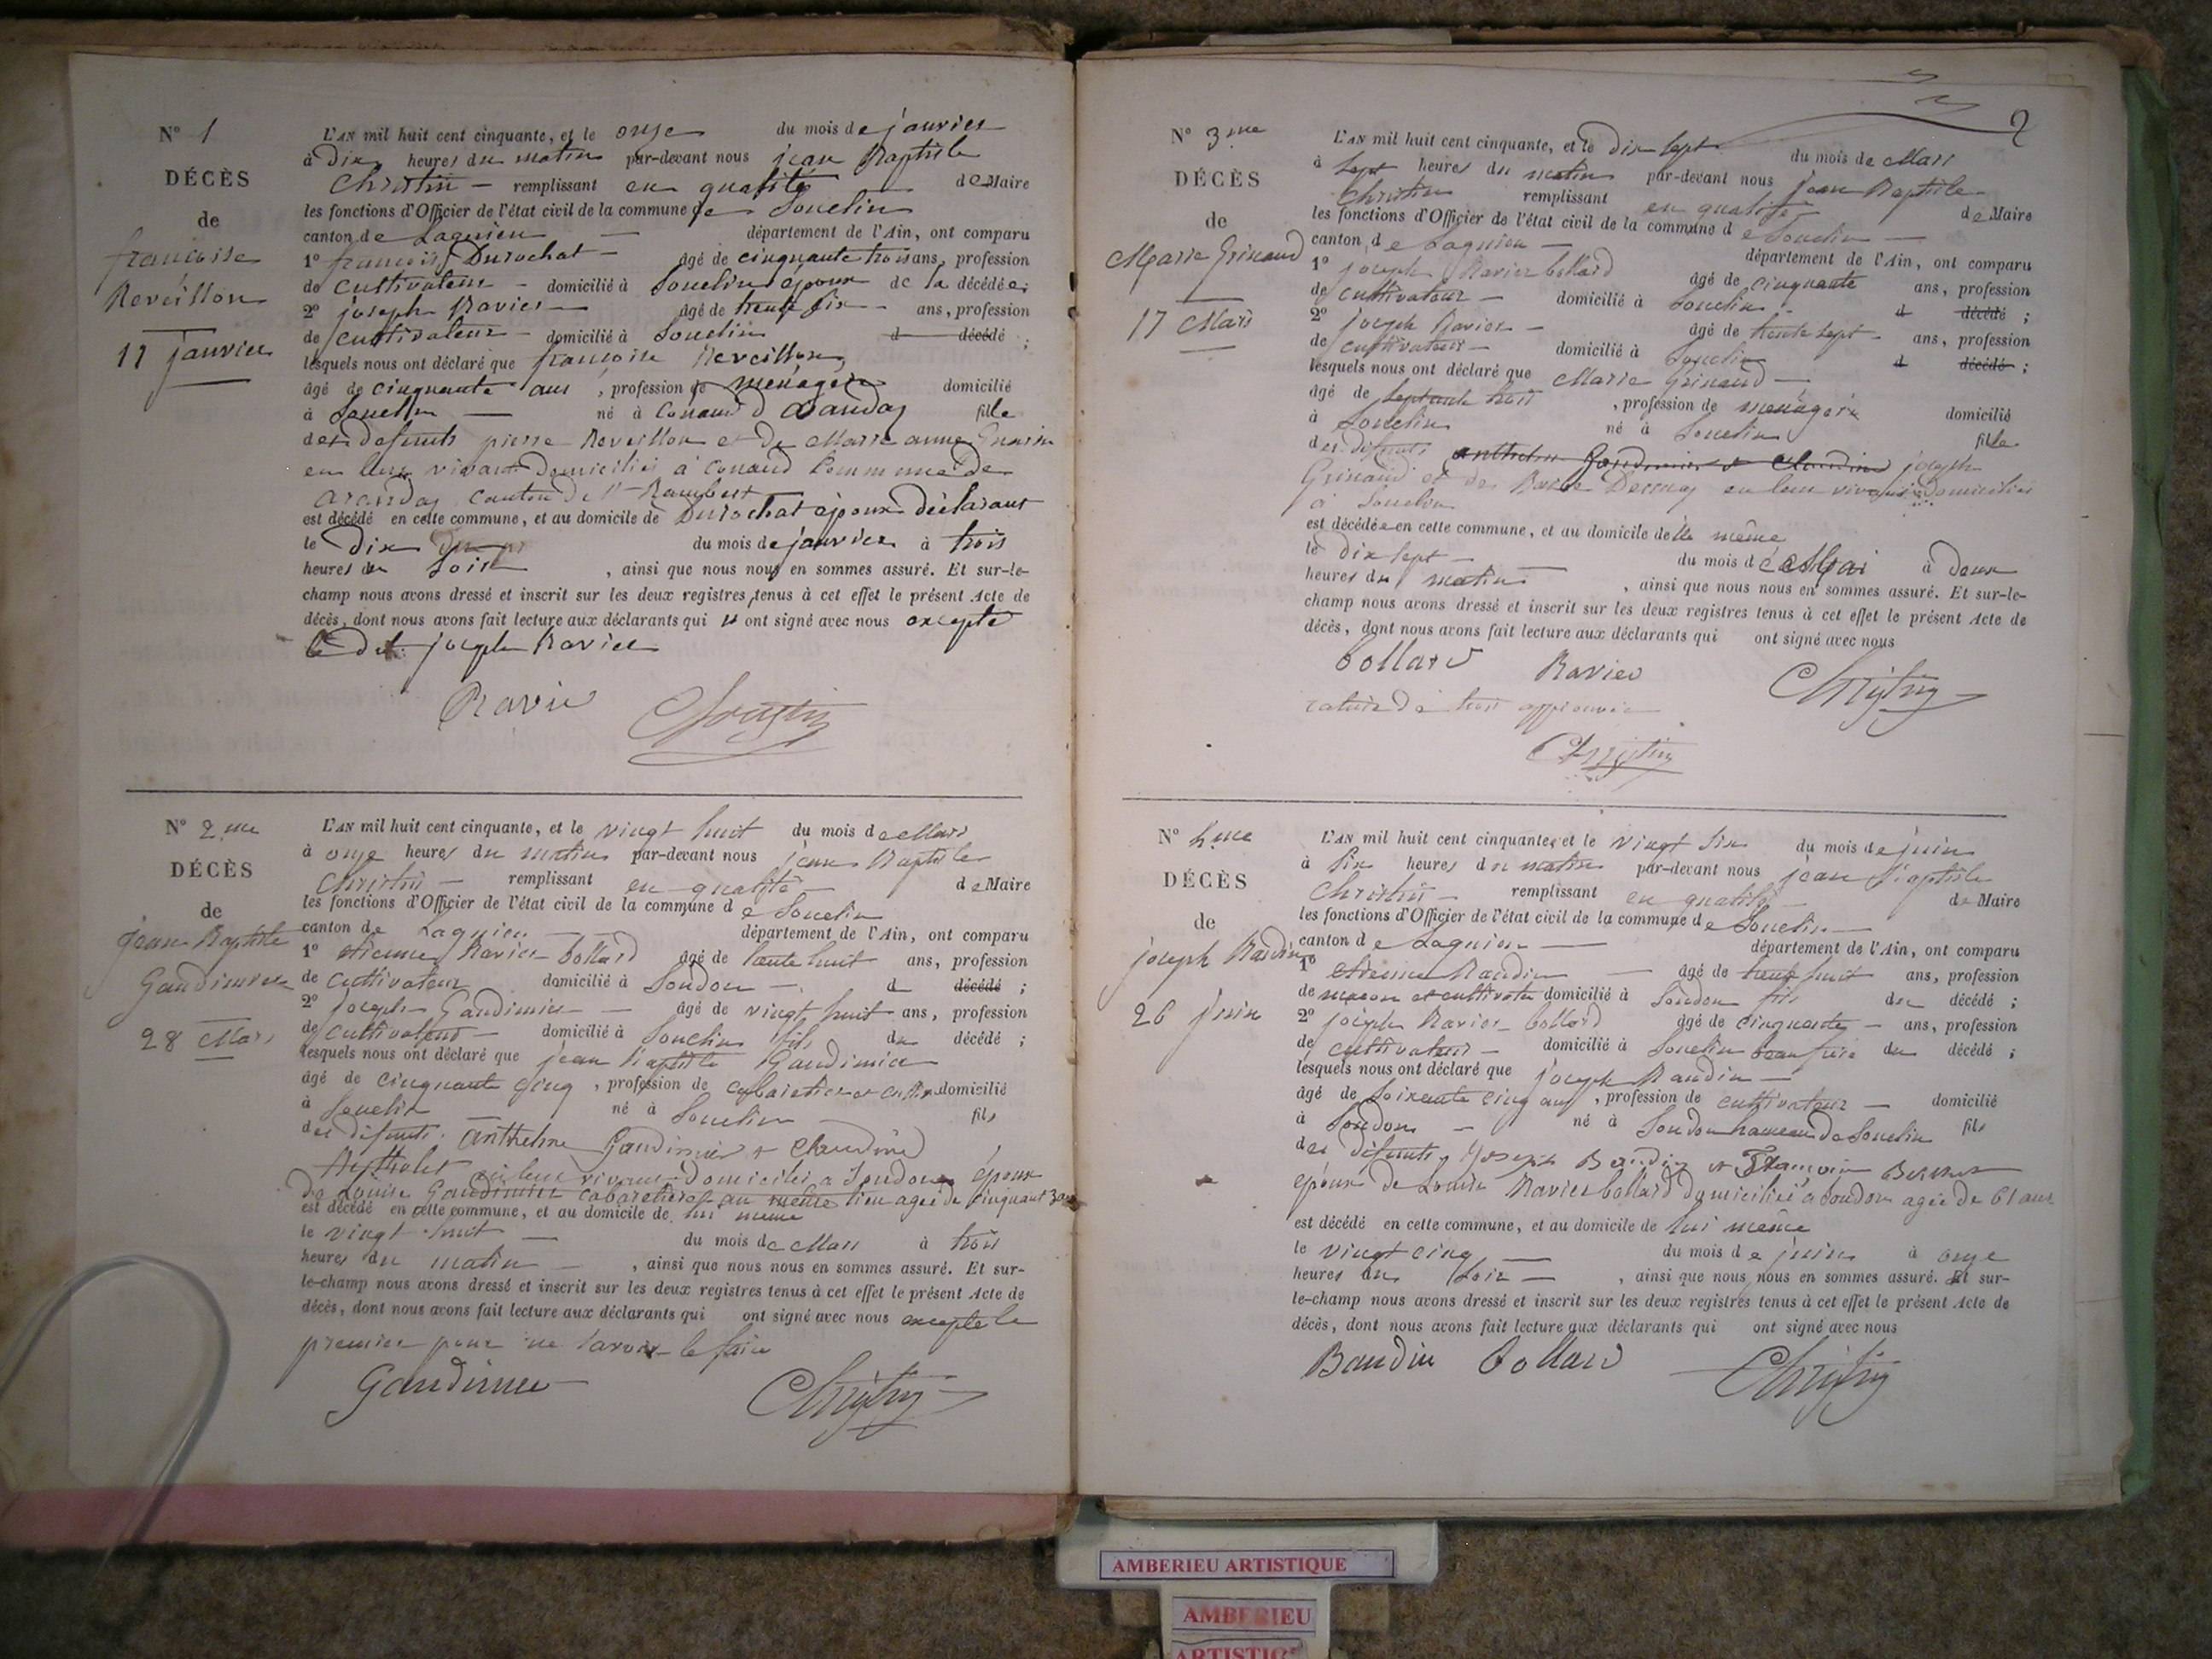 N° 1
DÉCÈS
de
françoise
Reveillon
11 janvier
L'AN mil huit cent cinquante, et le onze du mois de janvier
à dix heures du matin par-devant nous jean Baptiste
Christin remplissant en qualité de Maire
les fonctions d'Officier de l'état civil de la commune de Souclin
canton de Lagnieu département de l'Ain, ont comparu
1° françois Durochat âgé de cinquante trois ans, profession
de cultivateur domicilié à Souclin époux de la décédée;
2° joseph Ravier âgé de trente six ans, profession
de cultivateur domicilié à Souclin d décédé ;
lesquels nous ont déclaré que françoise Reveillon,
âgé de cinquante ans , profession de menagere domicilié
à Souclin né à Conand d arandas fille
des defunts pierre Reveillon et de Marie anne
en leur vivant domiciliés à Conand Commune de
arandas canton de St Rambert
est décédé en cette commune, et au domicile de Durochat époux déclarant
le Dix du mois de janvier à trois
heures du soir , ainsi que nous nous en sommes assuré. Et sur-le-
champ nous avons dressé et inscrit sur les deux registres tenus à cet effet le présent Acte de
décès, dont nous avons fait lecture aux déclarants qui ont signé avec nous excepté
le dit joseph Ravier
Ravie Christin
N° 2.me
DÉCÈS
de
jean Baptiste
Gaudimier
28 Mars
L'AN mil huit cent cinquante, et le vingt huit du mois de Mars
à onze heures du matin par-devant nous jean Baptiste
Christin remplissant en qualité de Maire
les fonctions d'Officier de l'état civil de la commune de Souclin
canton de Lagnieu département de l'Ain, ont comparu
1° etienne Ravier bollard âgé de trente huit ans, profession
de cultivateur domicilié à Soudon d décédé ;
2° joseph Gaudimier âgé de vingt huit ans, profession
de cultivateur domicilié à Souclin fils du décédé ;
lesquels nous ont déclaré que jean Baptiste Gaudimier
âgé de cinquante cinq , profession de cabaretier et domicilié
à Souclin né à Souclin fils
des défunts anthelme Gaudimier et Claudine
en leur vivant domiciliés a Soudon époux
de Louise Gaudimier cabaretière au même lieu agée de cinquant 3 ans
est décédé en cette commune, et au domicile de lui même
le vingt huit du mois de Mars à trois
heures du matin , ainsi que nous nous en sommes assuré. Et sur-
le-champ nous avons dressé et inscrit sur les deux registres tenus à cet effet le présent Acte de
décès, dont nous avons fait lecture aux déclarants qui ont signé avec nous excepté le
premier pour ne savoir le faire
Gaudimier Christin
2
N° 3me
DÉCÈS
de
Marie Grinand
17 Mars
L'AN mil huit cent cinquante, et le dix sept du mois de Mars
à sept heures du matin par-devant nous jean Baptiste
Christin remplissant en qualité de Maire
les fonctions d'Officier de l'état civil de la commune de Souclin
canton de Lagnieu département de l'Ain, ont comparu
1° joseph Ravier bollard âgé de cinquante ans, profession
de cultivateur domicilié à Souclin d décédé ;
2° joseph Ravier âgé de trente sept ans, profession
de cultivateur domicilié à Souclin d décédé ;
lesquels nous ont déclaré que Marie Grinand
âgé de septante trois , profession de menagère domicilié
à Souclin né à Souclin fille
des défunts anthelme Gaudimier et Claudine joseph
Grinand et de en leur vivant domiciliés
à Souclin
est décédée en cette commune, et au domicile delle même
le dix sept du mois de Mai à deux
heures du matin , ainsi que nous nous en sommes assuré. Et sur-le-
champ nous avons dressé et inscrit sur les deux registres tenus à cet effet le présent Acte de
décès, dont nous avons fait lecture aux déclarants qui ont signé avec nous
bollard Ravier Christin
trois approuvée
Christin
N° 4me
DÉCÈS
de
joseph Baudin
26 juin
L'AN mil huit cent cinquante, et le vingt six du mois de juin
à six heures du matin par-devant nous jean Baptiste
Christin remplissant en qualité de Maire
les fonctions d'Officier de l'état civil de la commune de Souclin
canton de Lagnieu département de l'Ain, ont comparu
1° etienne Baudin âgé de trente huit ans, profession
de maçon et cultivateur domicilié à Soudon fils du décédé ;
2° joseph Ravier bollard âgé de cinquante ans, profession
de cultivateur domicilié à Souclin beau frère du décédé ;
lesquels nous ont déclaré que joseph Baudin
âgé de soixante cinq ans , profession de cultivateur domicilié
à Soudon né à Soudon hameau de Souclin fils
des défunts Joseph Baudin et
époux de Louise Ravier bollard domiciliée a Soudon agée de 61 ans
est décédé en cette commune, et au domicile de lui même
le vingt cinq du mois de juin à onze
heures du soir , ainsi que nous nous en sommes assuré. Et sur-
le-champ nous avons dressé et inscrit sur les deux registres tenus à cet effet le présent Acte de
décès, dont nous avons fait lecture aux déclarants qui ont signé avec nous
Baudin bollard Christin
AMBERIEU ARTISTIQUE
AMBERIEU
ARTISTIQ